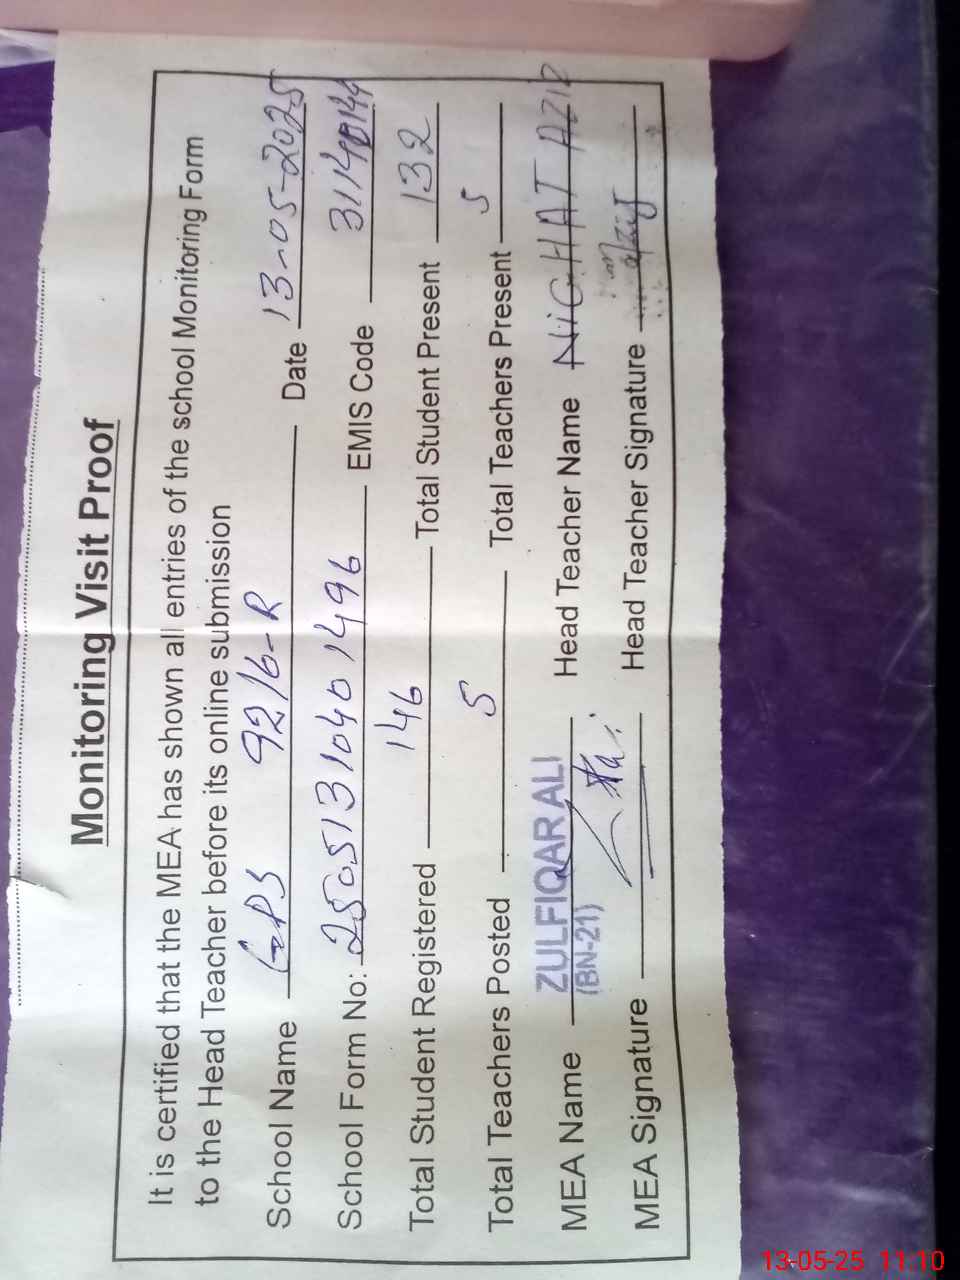 Monitoring Visit Proof
It is certified that the MEA has shown all entries of the school Monitoring Form
to the Head Teacher before its online submission
School Name GPS 92/6-R Date 13-05-2025
School Form No: 25051310401496 EMIS Code
Total Student Registered 146 Total Student Present 132
Total Teachers Posted 5 Total Teachers Present 5
MEA Name ZULFIQAR ALI Head Teacher Name NIGHAT AZIZ
(BN-21)
MEA Signature Head Teacher Signature
13-05-25 11:10